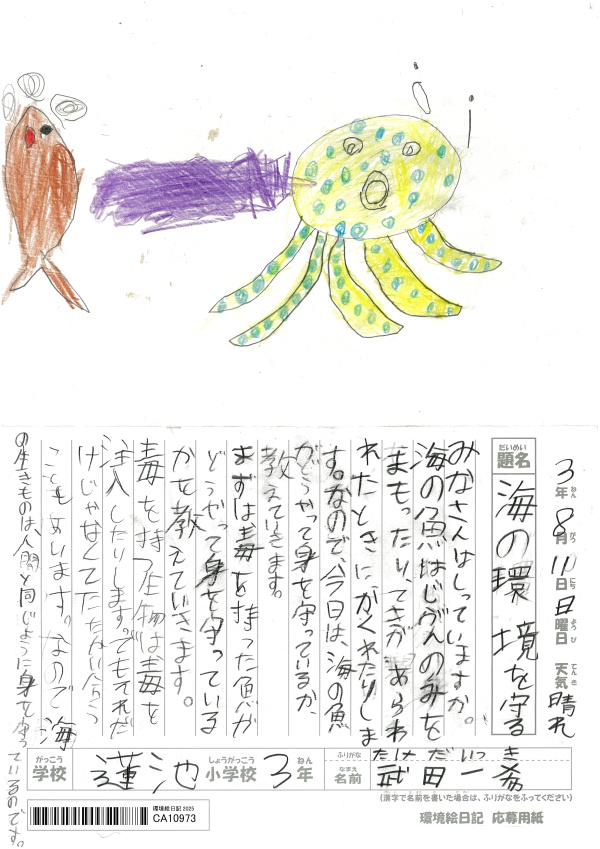 3年8月11日日曜日 天気晴れ
ねん がつ にち ようび てんき
だいめい
題名 海の環境を守る
みなさんはしっていますか。
海の魚はじぶんのみを
まもったり、てきがあらわ
れたときにかくれたりしま
す。なので、今日は、海の魚
がどうやって身を守っているか、
教えていきます。
まずは毒を持った魚が
どうやって身を守っている
かを教えていきます。
毒を持つ生物は毒を
注入したりします。でもそれだ
けじゃなくてたたかい合う
こともあいます。なので海
の生きものは人間と同じように身を守っているのです。
がっこう しょうがっこう ねん ふりがな たけ だ いっ き
学校 蓮池 小学校 3年 なまえ 名前 武田一希
(漢字で名前を書いた場合は、ふりがなをふってください)
環境絵日記 2025
CA10973
環境絵日記 応募用紙